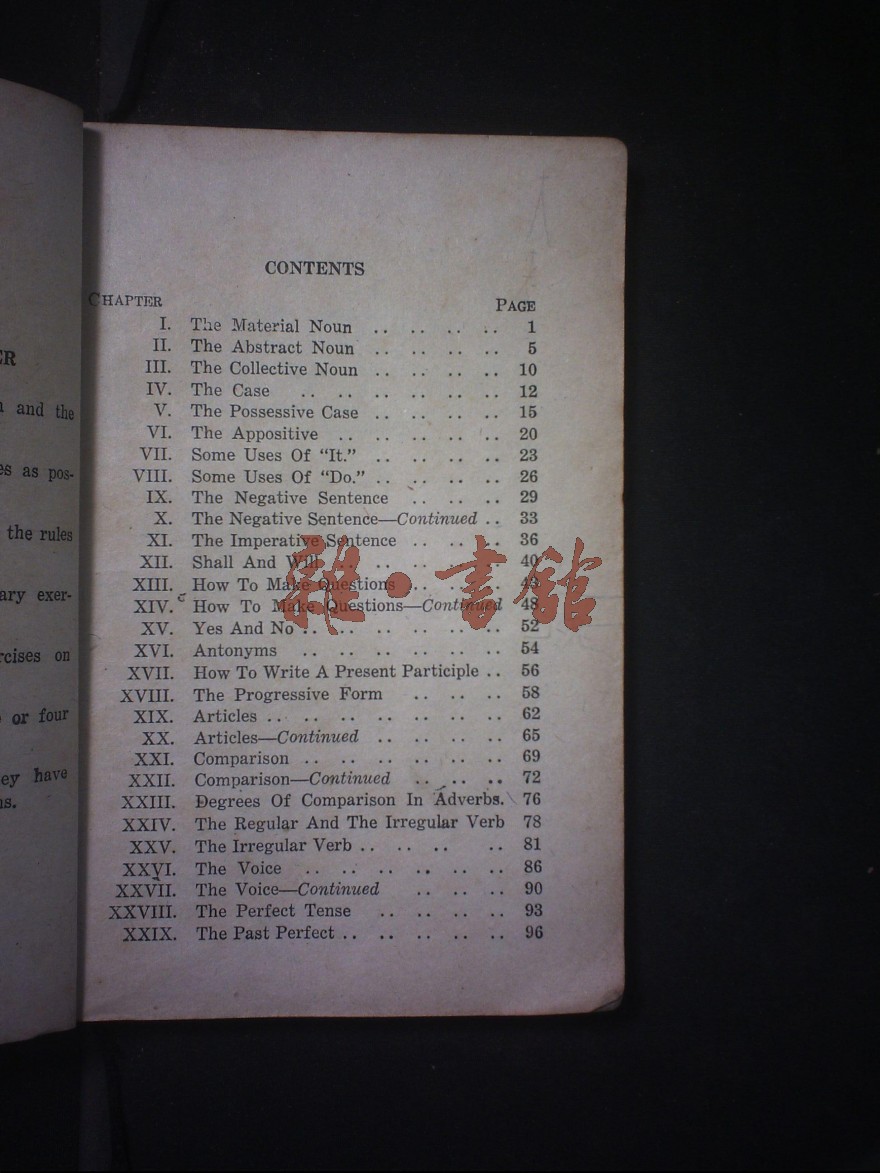 ER
n and the
es as pos-
the rules
ary exer-
rcises on
or four
ey have
ns.
CONTENTS
CHAPTER PAGE
I. The Material Noun .. .. .. .. 1
II. The Abstract Noun .. .. .. .. 5
III. The Collective Noun .. .. .. .. 10
IV. The Case .. .. .. .. .. .. 12
V. The Possessive Case .. .. .. .. 15
VI. The Appositive .. .. .. .. .. 20
VII. Some Uses Of “It.” .. .. .. .. 23
VIII. Some Uses Of “Do.” .. .. .. .. 26
IX. The Negative Sentence .. .. .. 29
X. The Negative Sentence—Continued .. 33
XI. The Imperative Sentence .. .. .. 36
XII. Shall And Will .. .. .. .. .. 40
XIII. How To Make Questions .. .. .. 43
XIV. How To Make Questions—Continued 48
XV. Yes And No .. .. .. .. .. .. 52
XVI. Antonyms .. .. .. .. .. .. 54
XVII. How To Write A Present Participle .. 56
XVIII. The Progressive Form .. .. .. 58
XIX. Articles .. .. .. .. .. .. .. 62
XX. Articles—Continued .. .. .. .. 65
XXI. Comparison .. .. .. .. .. .. 69
XXII. Comparison—Continued .. .. .. 72
XXIII. Degrees Of Comparison In Adverbs. 76
XXIV. The Regular And The Irregular Verb 78
XXV. The Irregular Verb .. .. .. .. 81
XXVI. The Voice .. .. .. .. .. .. 86
XXVII. The Voice—Continued .. .. .. 90
XXVIII. The Perfect Tense .. .. .. .. 93
XXIX. The Past Perfect .. .. .. .. .. 96
雜·書館